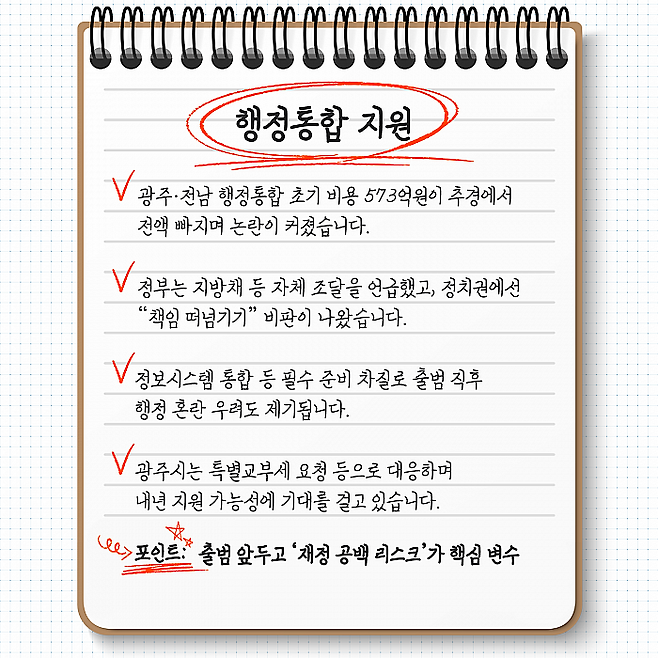 행정통합 지원
광주·전남 행정통합 초기 비용 573억원이 추경에서
전액 빠지며 논란이 커졌습니다.
정부는 지방채 등 자체 조달을 언급했고, 정치권에선
“책임 떠넘기기” 비판이 나왔습니다.
정보시스템 통합 등 필수 준비 차질로 출범 직후
행정 혼란 우려도 제기됩니다.
광주시는 특별교부세 요청 등으로 대응하며
내년 지원 가능성에 기대를 걸고 있습니다.
포인트: 출범 앞두고 ‘재정 공백 리스크’가 핵심 변수